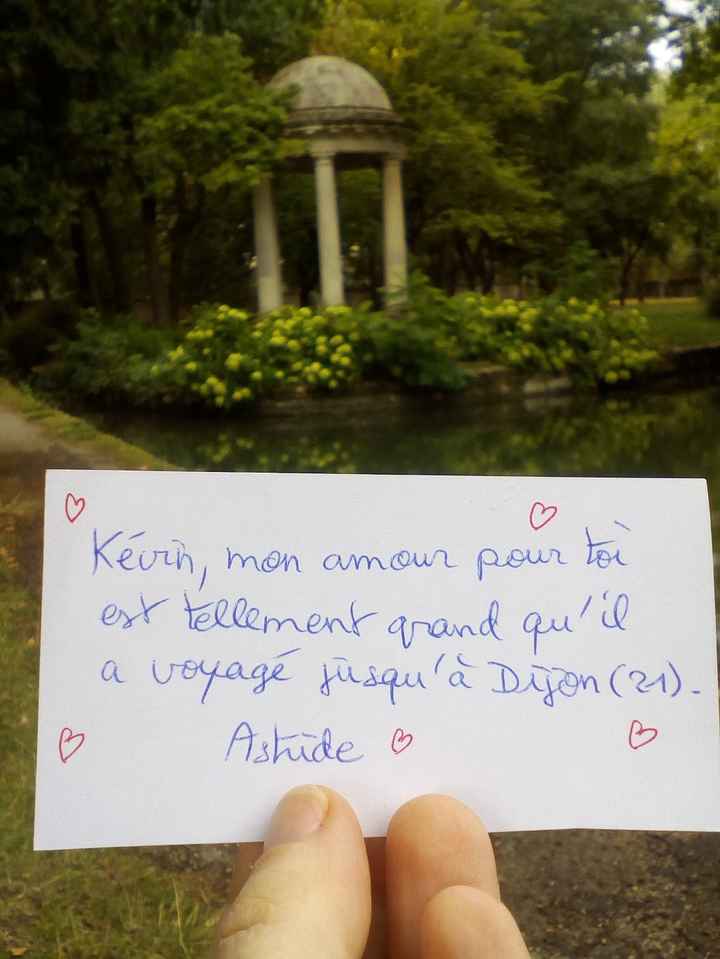 Kévin, mon amour pour toi
est tellement grand qu'il
a voyagé jusqu'à Dijon (21).
Astride